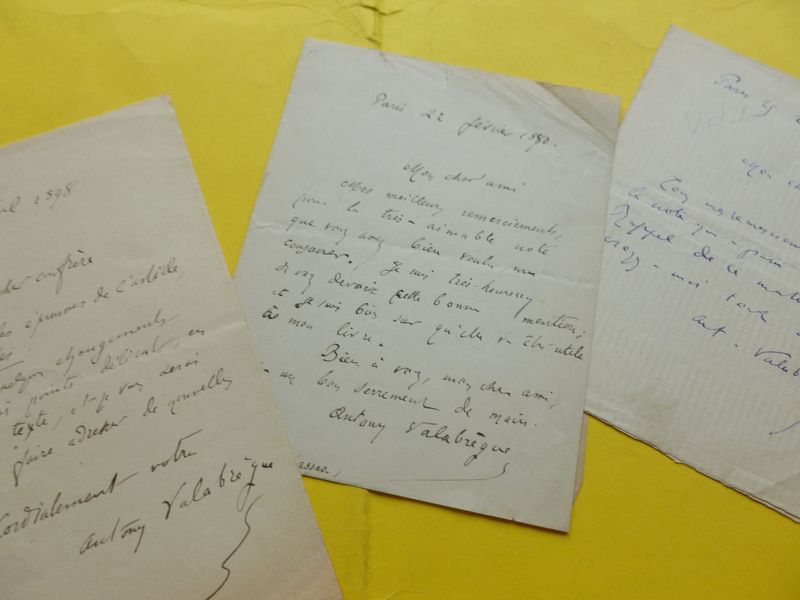 1898
confrère
épreuves de l'article,
quelques changements
points délicats, en
texte, et je vous serais
faire adresser de nouvelles
Cordialement votre
Antony Valabrègue
Paris 22 février 1890.
Mon cher ami
Mes meilleurs remerciements,
pour la très-aimable note
que vous avez bien voulu me
consacrer. Je suis très-heureux
de vous devoir cette bonne mention;
et je suis bien sur qu'elle va être utile
à mon livre.
Bien à vous, mon cher ami,
un bon serrement de main.
Antony Valabrègue
Paris
Mon ch
Tous mes remerciem
la note qui a paru
Rappel de la
moi tout
Ant. Valab